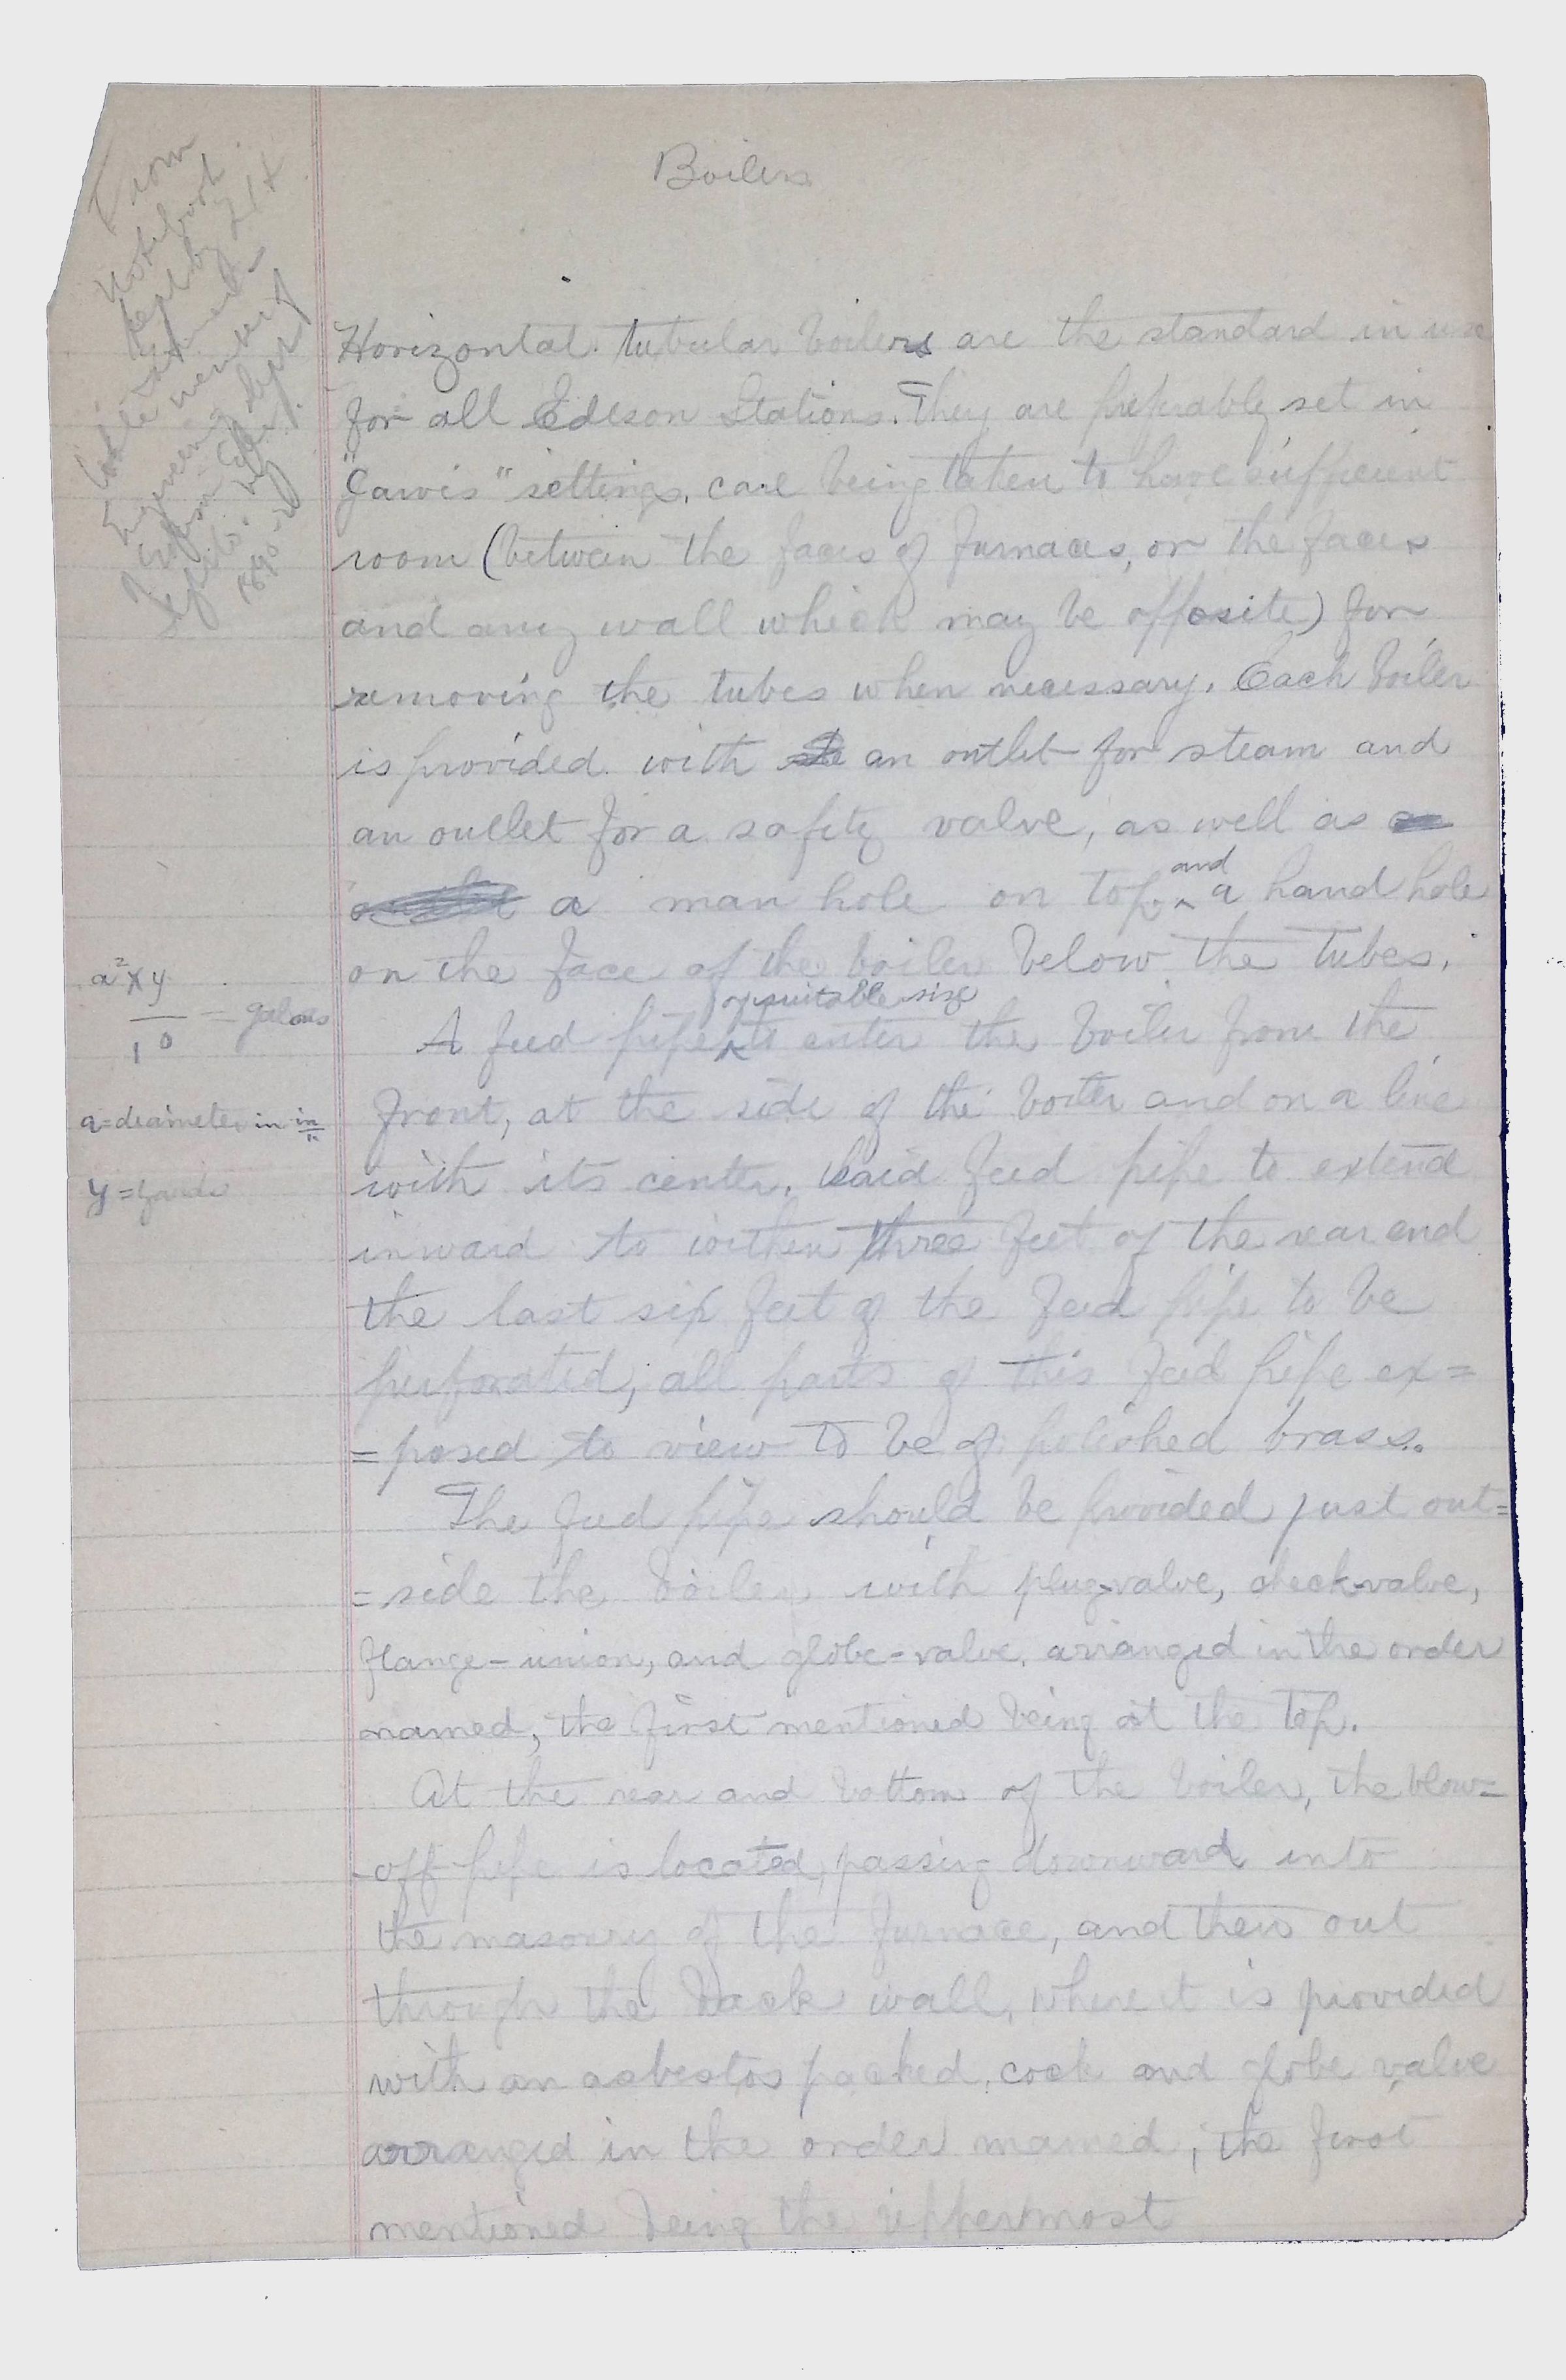 Boilers
From
Notebook
kept by
while
member of
Engineering Dept
1890
Horizontal tubular boilers are the standard in use
for all Edison Stations. They are preferably set in
"Jarvis" settings, care being taken to have sufficient
room (between the faces of furnaces, or the faces
and any wall which may be opposite) for
removing the tubes when necessary. Each boiler
is provided with an outlet for steam and
an outlet for a safety valve, as well as
a man hole on top and a hand hole
on the face of the boiler below the tubes.
A feed pipe of suitable size to enter the boiler from the
front, at the side of the boiler and on a line
with its center. Said feed pipe to extend
inward to within three feet of the rear end
the last six feet of the feed pipe to be
perforated, all parts of this feed pipe ex=
=posed to view to be of polished brass.
The feed pipe should be provided just out=
=side the boiler with plug-valve, check-valve,
flange-union, and globe-valve, arranged in the order
named, the first mentioned being at the top.
At the rear and bottom of the boiler, the blow=
-off pipe is located, passing downward into
the masonry of the furnace, and then out
through the back wall, where it is provided
with an asbestos packed, cock and globe valve
arranged in the order named; the first
mentioned being the uppermost
a² x y
10
= galons
a=diameter in in
y=yards